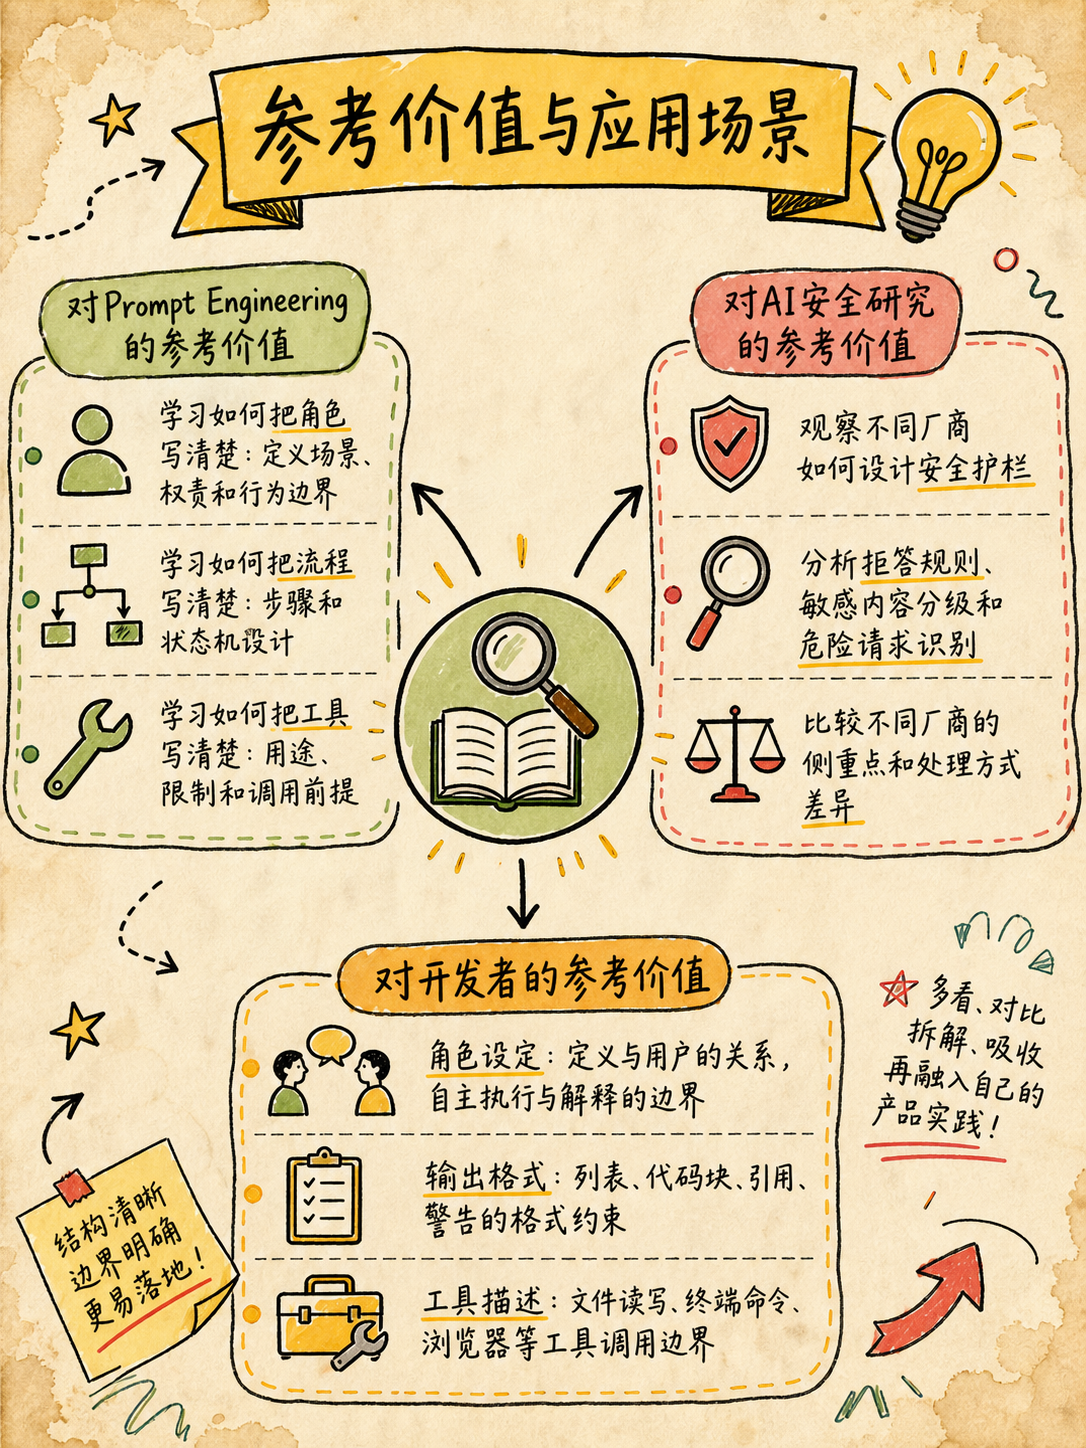 参考价值与应用场景
对Prompt Engineering
的参考价值
学习如何把角色
写清楚：定义场景、
权责和行为边界
学习如何把流程
写清楚：步骤和
状态机设计
学习如何把工具
写清楚：用途、
限制和调用前提
对AI安全研究
的参考价值
观察不同厂商
如何设计安全护栏
分析拒答规则、
敏感内容分级和
危险请求识别
比较不同厂商的
侧重点和处理方式
差异
对开发者的参考价值
角色设定：定义与用户的关系，
自主执行与解释的边界
输出格式：列表、代码块、引用、
警告的格式约束
工具描述：文件读写、终端命令、
浏览器等工具调用边界
多看、对比
拆解、吸收
再融入自己的
产品实践！
结构清晰
边界明确
更易落地！